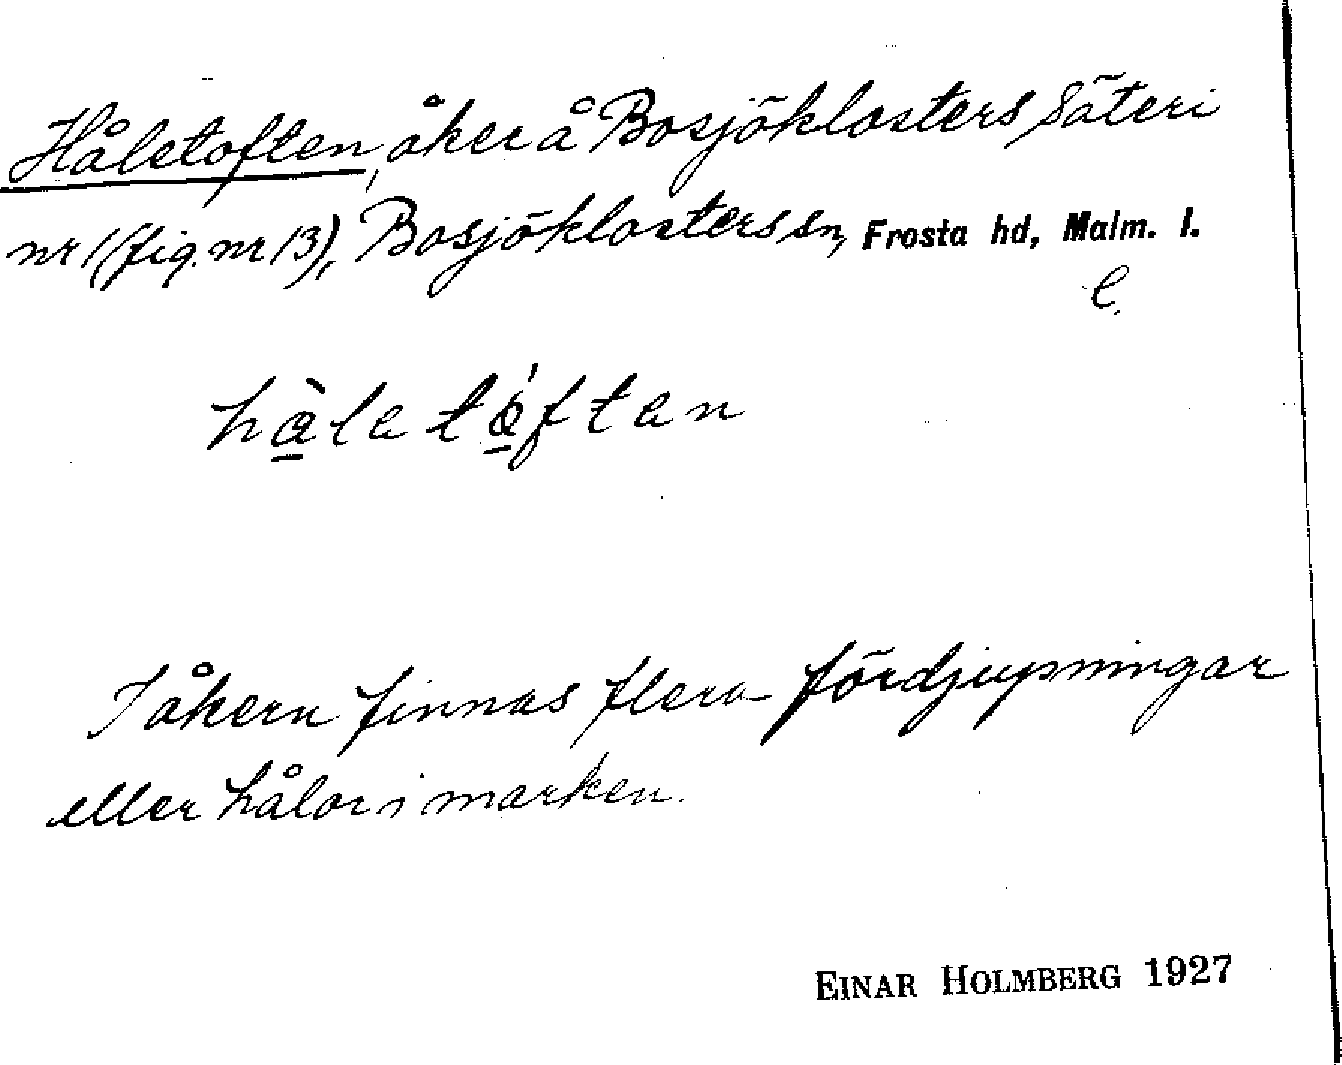 Håletoften, åker å Bosjöklosters säteri
nr 1 (fig. nr 13), Bosjöklosters sn, Frosta hd, Malm. l.
e.
hàletåften
I åkern finnas flera fördjupningar
eller hålor i marken.
EINAR HOLMBERG 1927